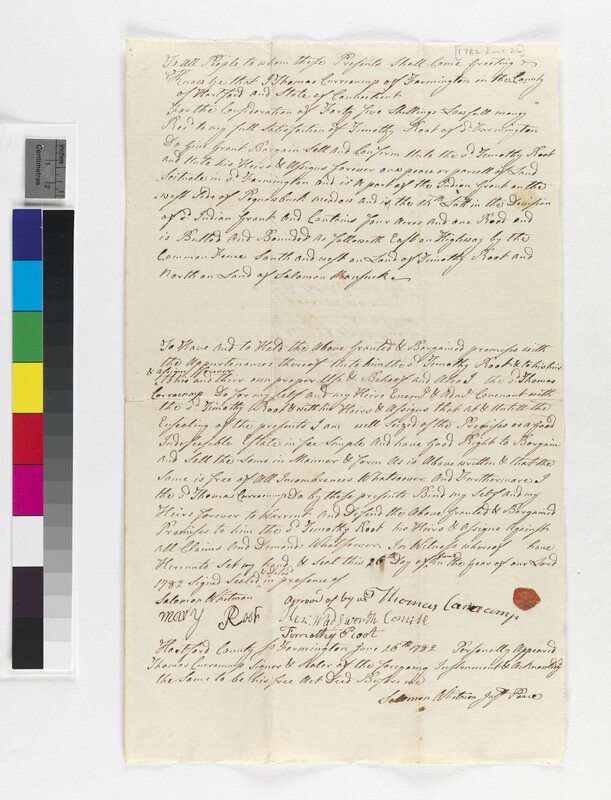 1782 June 26
To All People to whom these Presents Shall Come Greeting &
Know Ye that I Thomas Curricomp of Farmington in the County
of Hartford and State of Connecticut
For the Consideration of Forty five Shillings Lawfull money
Recd to my full Satisfaction of Timothy Root of sd Farmington
Do Give Grant Bargain Sell and Confirm Unto the sd Timothy Root
and Unto his Heirs & Assigns forever one peace or parcell of Land
Scituate in sd Farmington and is A part of the Indian Grant on the
west Side of Pequabuck meadow and is the 14th Lott in the Division
of sd Indian Grant And Contains four Acres And one Rood and
is Butted And Bounded as followeth East on Highway by the
Common Fence South and west on Land of Timothy Root and
North on Land of Salomon
To Have and to Hold the Above Granted & Bargained premises with
the Appurtenances thereof Unto him the sd Timothy Root & to his heirs
& assigns forever
to his and their own proper Use & Behoof and Also I the sd Thomas
Corracomp Do for my Self and my Heirs Execurs & Admrs Covenant with
the sd Timothy Root & with his Heirs & Assigns that at & Untill the
Ensealing of these presents I am well Seized of the Premises as a Good
Indefeasible Estate in fee Simple And have Good Right to Bargain
and Sell the Same in Manner & form As is Above written & that the
Same is free of All Incumbrances Whatsoever And Furthermore I
the sd Thomas Curricomp do by these presents Bind my Self and my
Heirs forever to Warrent and Defend the Above Granted & Bargained
Premises to him the sd Timothy Root his Heirs & Assigns Against
all Claims And Demands Whatsoever In Witness whereof have
Hereunto Set my Hand & Seal this 26th Day of June in the year of our Lord
1782 Signed Sealed & Deld in presence of
Solomon Whitman
approved of by us
Thomas Curracomp
mary Root
Hez Wadsworth Comitte
Timothy Root
Hartford County ss Farmington June 26th 1782 Personally Appeared
Thomas Curracomp Signer & Sealer of the foregoing Instrument & Acknowledgd
the Same to be his free Act Deed Before me
Solomon Whitman Just Peace